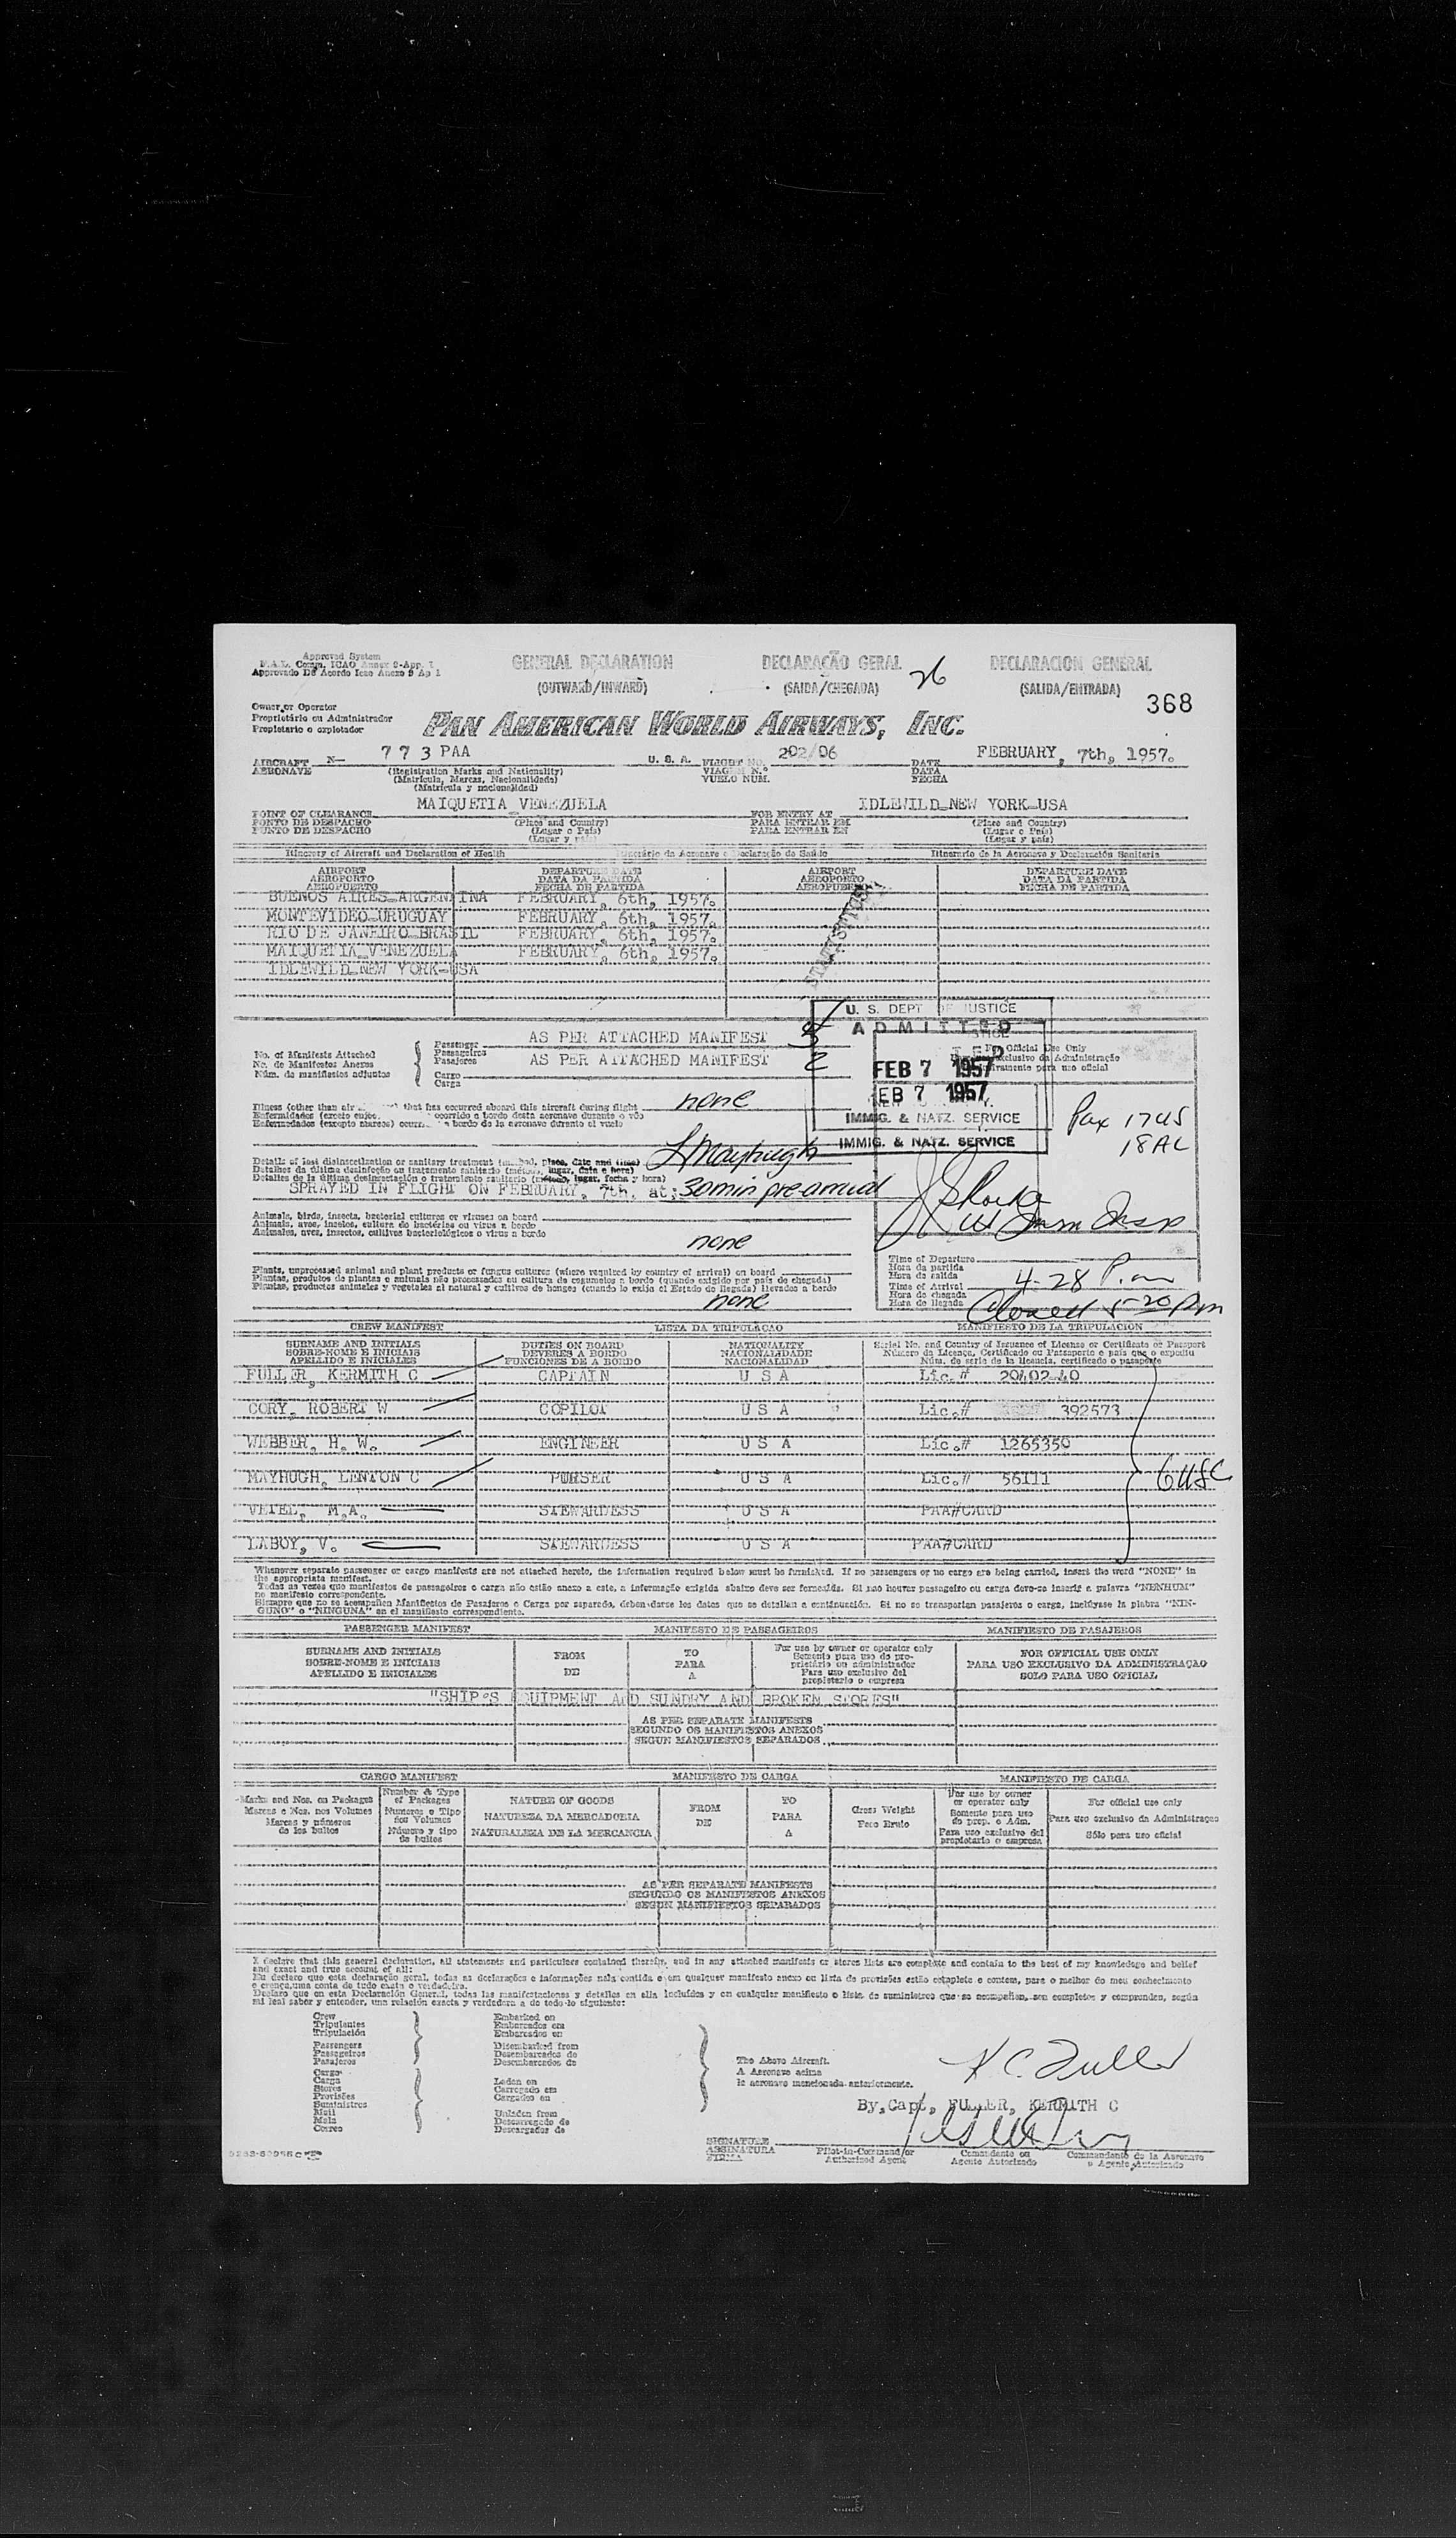 Approved System
F.A.L. Comm. ICAO Annex 9-App. 1
Approvado De Acordo Icao Anexo 9 Ap 1
GENERAL DECLARATION
(OUTWARD/INWARD)
DECLARAÇÃO GERAL
(SAIDA/CHEGADA)
26
DECLARACION GENERAL
(SALIDA/ENTRADA)
368
Owner or Operator
Proprietário ou Administrador
Propietario o explotador
PAN AMERICAN WORLD AIRWAYS, INC.
AIRCRAFT N— 773 PAA U. S. A. FLIGHT NO. 202/06 DATE FEBRUARY, 7th, 1957.
AERONAVE (Registration Marks and Nationality) VIAGEM N.º DATA
(Matrícula, Marcas, Nacionalidade) VUELO NUM. FECHA
(Matrícula y nacionalidad)
MAIQUETIA VENEZUELA IDLEWILD-NEW YORK-USA
POINT OF CLEARANCE (Place and Country) FOR ENTRY AT (Place and Country)
PONTO DE DESPACHO (Lugar e País) PARA ENTRAR EM (Lugar e País)
PUNTO DE DESPACHO (Lugar y país) PARA ENTRAR EN (Lugar y País)
Itinerary of Aircraft and Declaration of Health Itinerário da Aeronave e Declaração de Saúde Itinerario de la Aeronave y Declaración Sanitaria
AIRPORT DEPARTURE DATE AIRPORT DEPARTURE DATE
AEROPORTO DATA DA PARTIDA AEROPORTO DATA DA PARTIDA
AEROPUERTO FECHA DE PARTIDA AEROPUERTO FECHA DE PARTIDA
BUENOS AIRES-ARGENTINA FEBRUARY, 6th, 1957.
MONTEVIDEO-URUGUAY FEBRUARY, 6th, 1957.
RIO DE JANEIRO-BRASIL FEBRUARY, 6th, 1957.
MAIQUETIA-VENEZUELA FEBRUARY, 6th, 1957.
IDLEWILD-NEW YORK-USA
U. S. DEPT OF JUSTICE
ADMITTED
FEB 7 1957
FEB 7 1957
IMMIG. & NATZ. SERVICE
IMMIG. & NATZ. SERVICE
For Official Use Only
No. of Manifests Attached
No. de Manifestos Anexos
Núm. de manifiestos adjuntos
Passenger AS PER ATTACHED MANIFEST
Passageiros
Pasajeros AS PER ATTACHED MANIFEST 2
Cargo
Carga
Illness (other than air that has occurred aboard this aircraft during flight none
Pax 17US
18AL
L Mayhugh
Details of last disinsectization or sanitary treatment (method, place, date and time)
Detalhes da última desinfeção ou tratamento sanitário (método, lugar, data e hora)
Detalles de la última desinsectación o tratamiento sanitario (método, lugar, fecha y hora)
SPRAYED IN FLIGHT ON FEBRUARY, 7th. at; 30 min pre-arrival
Animals, birds, insects, bacterial cultures or viruses on board
Animais, aves, insetos, cultura de bactérias ou virus a bordo
Animales, aves, insectos, cultivos bacteriológicos o virus a bordo
none
Plants, unprocessed animal and plant products or fungus cultures (where required by country of arrival) on board
Plantas, produtos de plantas e animais não processados ou cultura de cogumelos a bordo (quando exigido por país de chegada)
Plantas, productos animales y vegetales al natural y cultivos de hongos (cuando lo exija el Estado de llegada) llevados a bordo
none
Time of Departure
Hora da partida
Hora de salida
Time of Arrival 4-28 P.m
Hora da chegada
Hora de llegada Closed 5-20 pm
CREW MANIFEST LISTA DA TRIPULAÇAO MANIFIESTO DE LA TRIPULACION
SURNAME AND INITIALS DUTIES ON BOARD NATIONALITY Serial No. and Country of Issuance of License or Certificate or Passport
SOBRE-NOME E INICIAIS DEVERES A BORDO NACIONALIDADE Número da Licença, Certificado ou Passaporte e país que o expediu
APELLIDO E INICIALES FUNCIONES DE A BORDO NACIONALIDAD Núm. de serie de la licencia, certificado o pasaporte
FULLER, KERMITH C CAPTAIN U S A Lic.# 20402-40
CORY, ROBERT W COPILOT U S A Lic.# 392573
WEBBER, H. W. ENGINEER U S A Lic.# 1265350
MAYHUGH, LENTON C PURSER U S A Lic.# 56111
VETEL, M.A. STEWARDESS U S A PAA#CARD
LABOY, V. STEWARDESS U S A PAA#CARD
6 USC
Whenever separate passenger or cargo manifests are not attached hereto, the information required below must be furnished. If no passengers or no cargo are being carried, insert the word "NONE" in
the appropriate manifest.
Todas as vezes que manifestos de passageiros o carga não estão anexo a este, a informação exigida abaixo deve ser fornecida. Si nao houver passageiro ou carga deve-se inserir a palavra "NENHUM"
no manifesto correspondente.
Siempre que no se acompañen Manifiestos de Pasajeros o Carga por separado, deben darse los datos que se detallan a continuación. Si no se transportan pasajeros o carga, inclúyase la plabra "NIN-
GUNO" o "NINGUNA" en el manifiesto correspondiente.
PASSENGER MANIFEST MANIFESTO DE PASSAGEIROS MANIFIESTO DE PASAJEROS
SURNAME AND INITIALS FROM TO For use by owner or operator only FOR OFFICIAL USE ONLY
SOBRE-NOME E INICIAIS PARA Somente para uso do pro- PARA USO EXCLUSIVO DA ADMINISTRAÇAO
APELLIDO E INICIALES DE A prietário ou administrador SOLO PARA USO OFICIAL
Para uso exclusivo del
propietario o empresa
"SHIP'S EQUIPMENT AND SUNDRY AND BROKEN STORES"
AS PER SEPARATE MANIFESTS
SEGUNDO OS MANIFESTOS ANEXOS
SEGUN MANIFIESTOS SEPARADOS
CARGO MANIFEST MANIFESTO DE CARGA MANIFIESTO DE CARGA
Marks and Nos. on Packages Number & Type of Packages NATURE OF GOODS FROM TO Gross Weight For use by owner or operator only For official use only
Marcas e Nos. nos Volumes Numeros e Tipo dos Volumes NATUREZA DA MERCADORIA DE PARA Peso Bruto Somente para uso do prop. o Adm. Para uso exclusivo da Administraçao
Marcas y números de los bultos Número y tipo de bultos NATURALEZA DE LA MERCANCIA A Para uso exclusivo del propietario o empresa Sólo para uso oficial
AS PER SEPARATE MANIFESTS
SEGUNDO OS MANIFESTOS ANEXOS
SEGUN MANIFIESTOS SEPARADOS
I declare that this general declaration, all statements and particulars contained therein, and in any attached manifests or stores lists are complete and contain to the best of my knowledge and belief
and exact and true account of all:
Eu declaro que esta declaração geral, todas as declarações e informações nela contida e em qualquer manifesto anexo ou lista de provisões estão complete e contem, para o melhor do meu conhecimento
e crença, uma conta de tudo exata e verdadeira.
Declaro que en esta Declaración General, todas las manifestaciones y detalles en ella incluídos y en cualquier manifiesto o lista de suministros que se acompañen, son completos y comprenden, según
mi leal saber y entender, una relación exacta y verdadera de todo lo siguiente:
Crew Embarked on
Tripulantes Embarcados em
Tripulación Embarcados en
Passengers Disembarked from
Passageiros Desembarcados de
Pasajeros Desembarcados de
Cargo
Carga Laden on
Stores Carregado em
Provisões Cargados en
Suministros
Mail Unladen from
Mala Descarregado de
Correo Descargados de
The Above Aircraft.
A Aeronave acima
la aeronave mencionada anteriormente.
K C Fuller
By, Capt, FULLER, KERMITH C
SIGNATURE
ASSINATURA Pilot-in-Command/or Comandante ou Commandante de la Aeronave
FIRMA Authorized Agent Agente Autorizado o Agente Autorizado